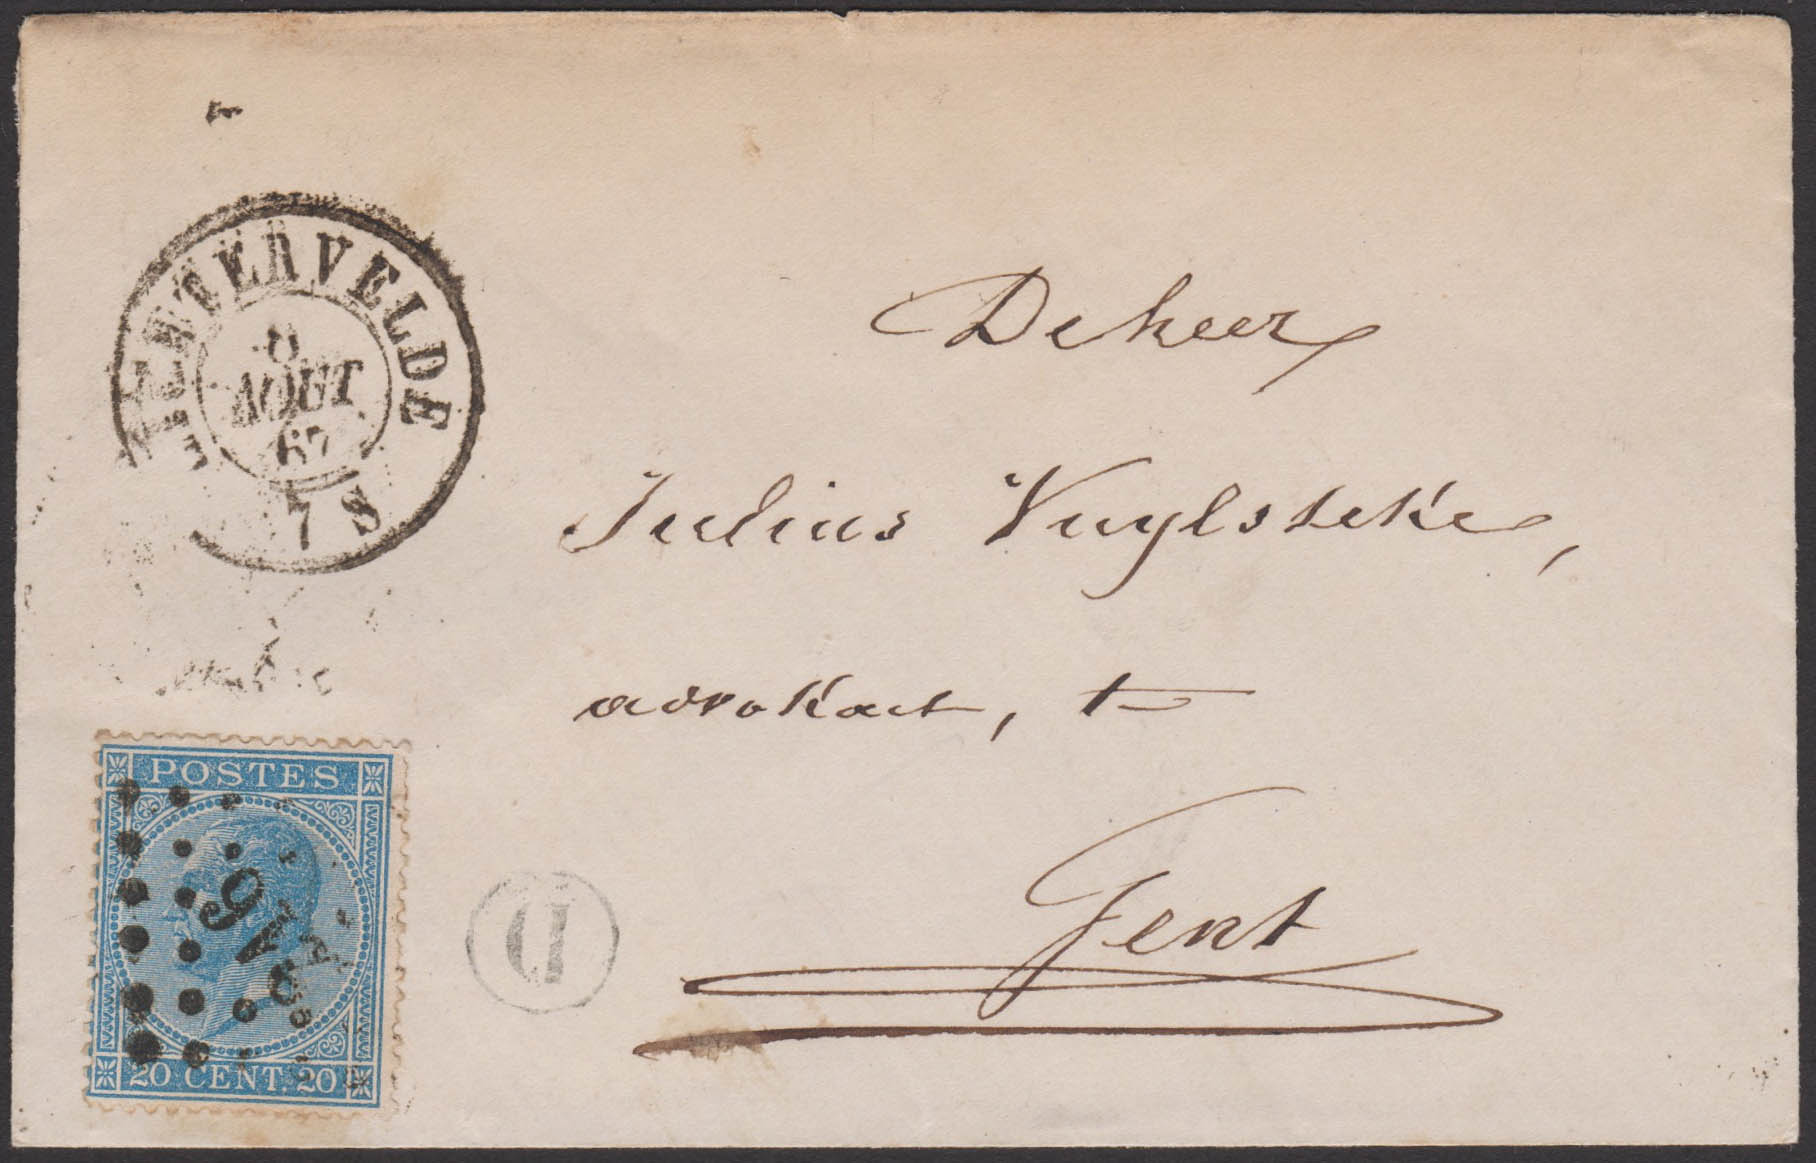 LICHTERVELDE
AOUT
67
7 S
Deheer
Julius Vuylsteke,
advokaat, te
Gent
D
POSTES
20 CENT. 20